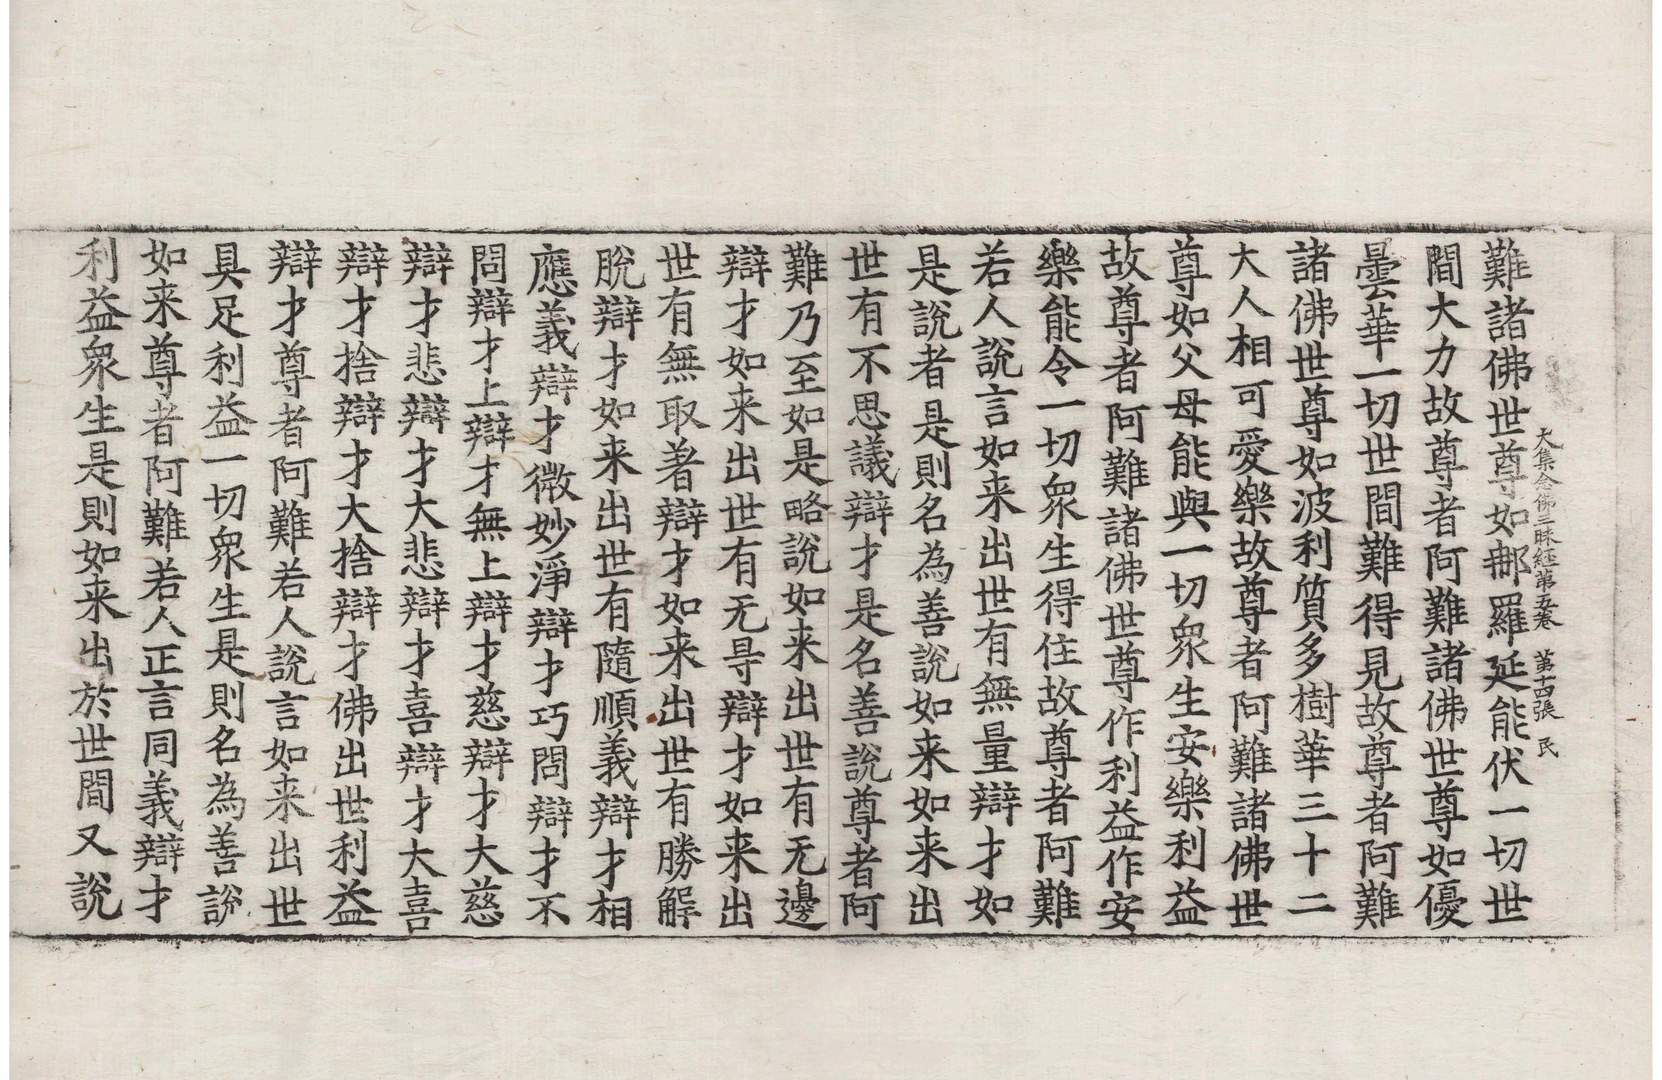 大集念佛三昧經第五卷 第十四張 民
難諸佛世尊如郍羅延能伏一切世
間大力故尊者阿難諸佛世尊如優
曇華一切世間難得見故尊者阿難
諸佛世尊如波利質多樹華三十二
大人相可愛樂故尊者阿難諸佛世
尊如父母能與一切衆生安樂利益
故尊者阿難諸佛世尊作利益作安
樂能令一切衆生得住故尊者阿難
若人說言如来出世有無量辯才如
是說者是則名為善說如来如来出
世有不思議辯才是名善說尊者阿
難乃至如是略說如来出世有无邊
辯才如来出世有无㝵辯才如来出
世有無取著辯才如来出世有勝解
脫辯才如来出世有隨順義辯才相
應義辯才微妙淨辯才巧問辯才不
問辯才上辯才無上辯才慈辯才大慈
辯才悲辯才大悲辯才喜辯才大喜
辯才捨辯才大捨辯才佛出世利益
辯才尊者阿難若人說言如来出世
具足利益一切衆生是則名為善說
如来尊者阿難若人正言同義辯才
利益衆生是則如来出於世間又說